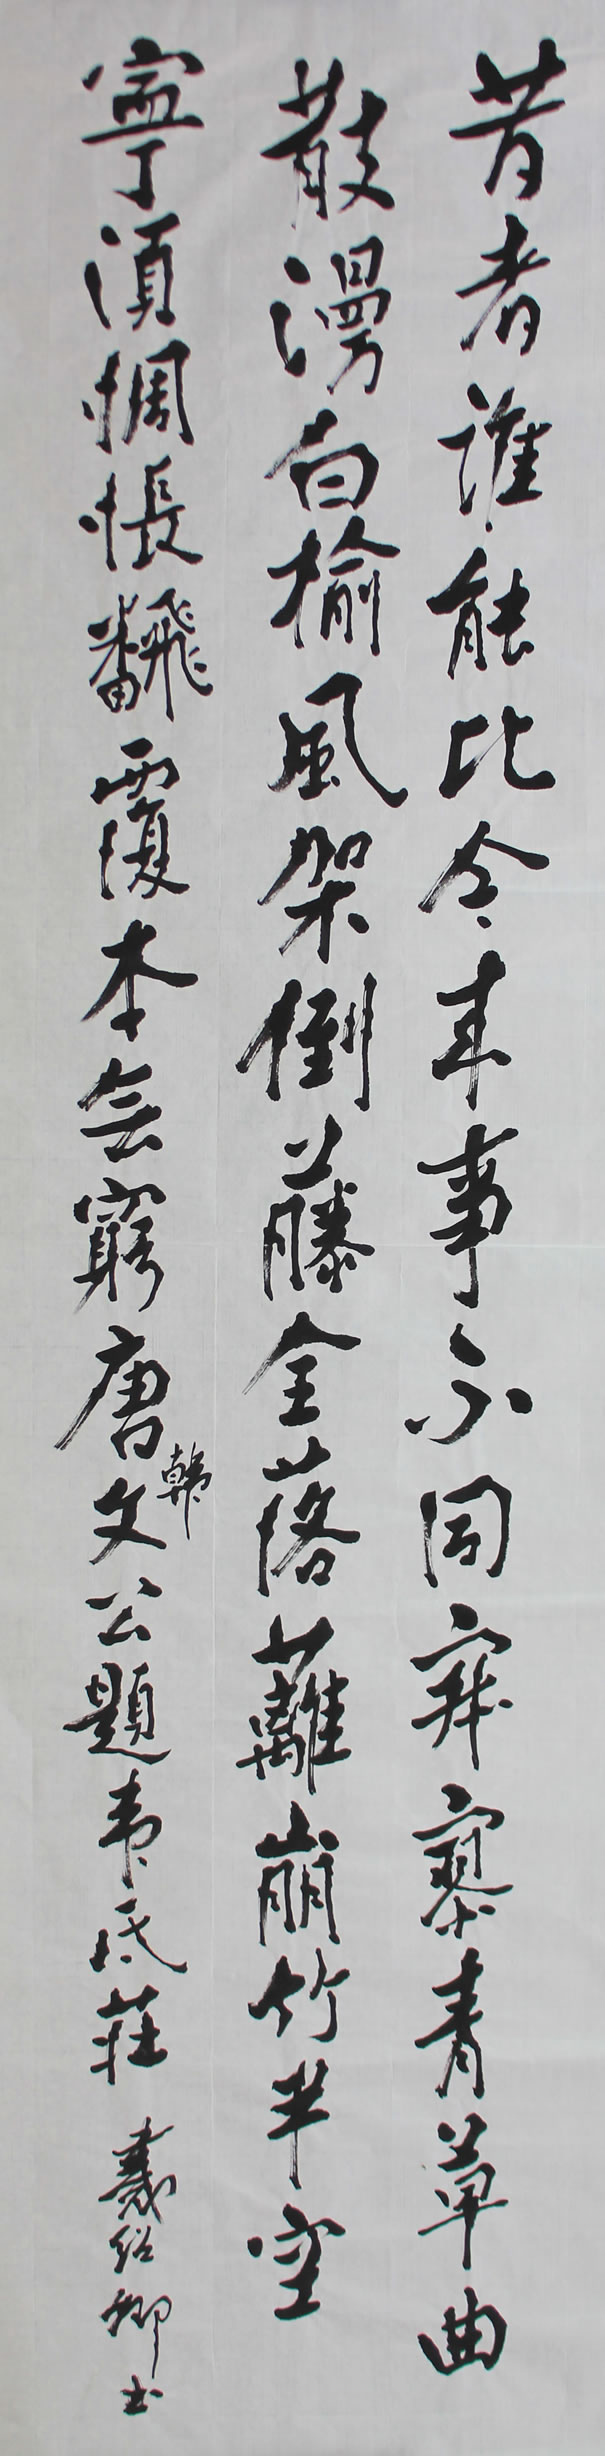 昔者誰能比今来事不同寂寞青草曲
散漫白榆風架倒藤全落蘺崩竹半空
寧須惆悵飜覆本無窮唐韓文公題韋氏莊 紹卿書